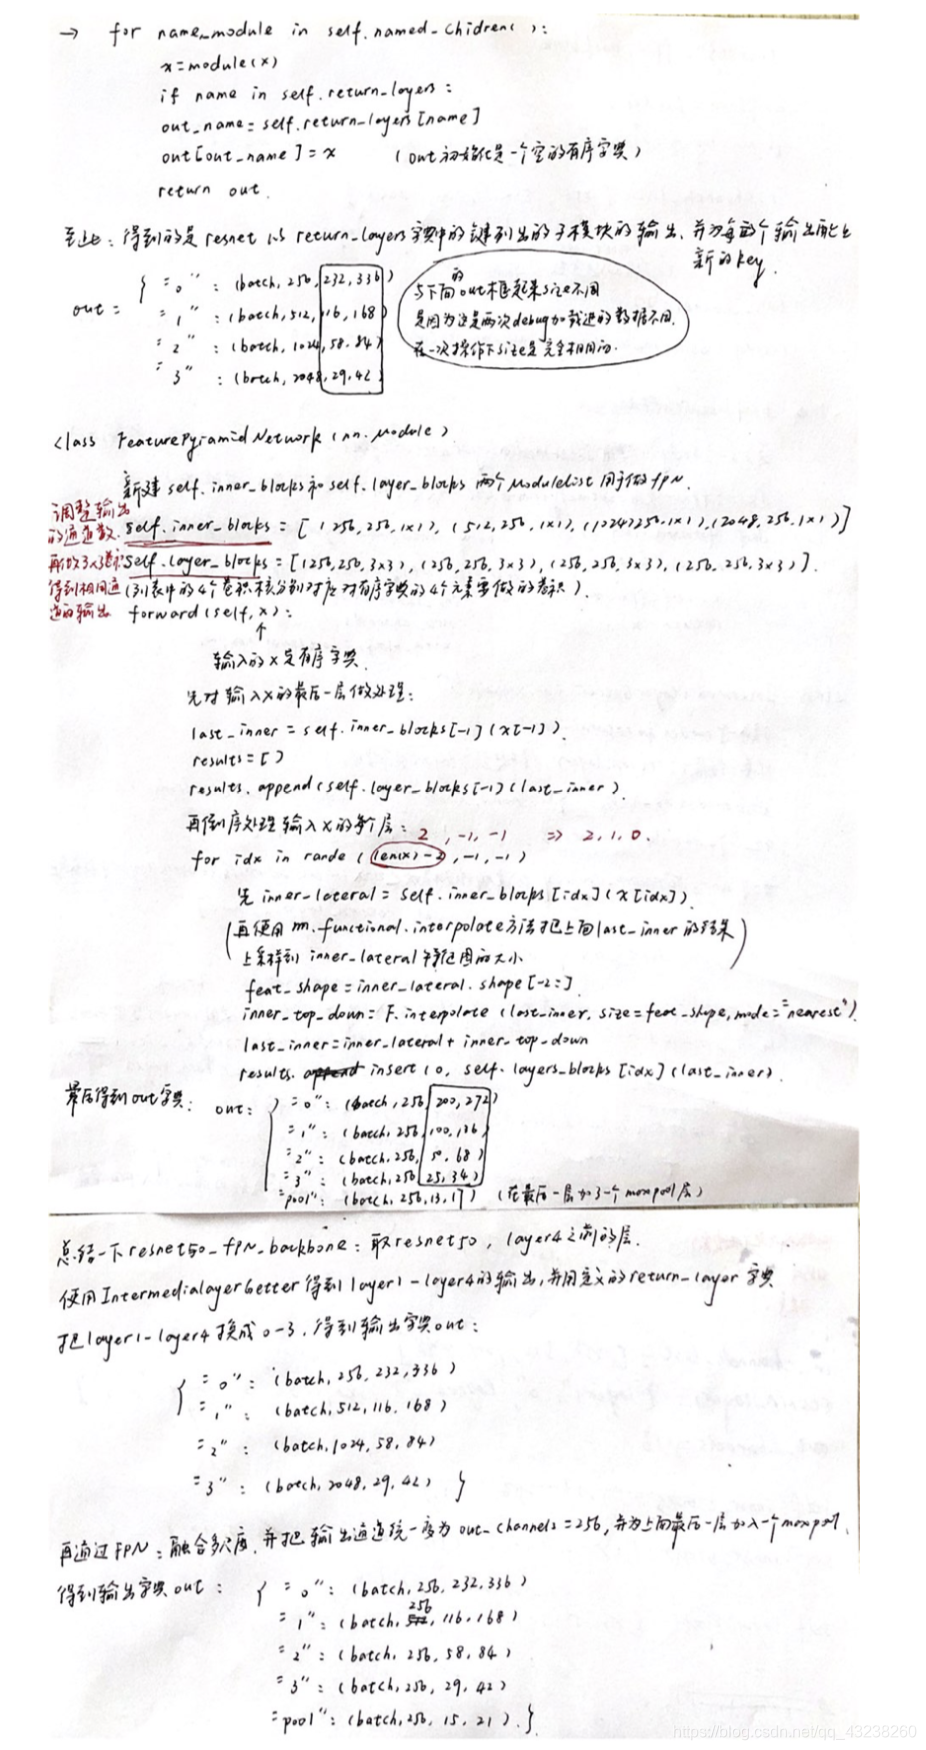 → for name_module in self.named_chidren():
x=module(x)
if name in self.return_layers:
out_name=self.return_layers[name]
out[out_name]=x (out初始化是一个空的有序字典)
return out.
至此: 得到的是resnet以return_layers字典中的键列出的子模块的输出, 并为每个输出配上
新的key.
out = { "0" : (batch, 256, 232, 336)
"1" : (batch, 512, 116, 168)
"2" : (batch, 1024, 58, 84)
"3" : (batch, 2048, 29, 42)
与下面的out框起来size不同
是因为这是两次debug加载进的数据不同.
在一次操作下size是完全相同的.
class FeaturePyramidNetwork(nn.Module)
新建self.inner_blocks和self.layer_blocks两个ModuleList用于做fpn.
调整输出
的通道数. self.inner_blocks = [(256,256,1x1), (512,256,1x1), (1024,256,1x1), (2048,256,1x1)]
再做3x3卷积 self.layer_blocks = [(256,256,3x3), (256,256,3x3), (256,256,3x3), (256,256,3x3)].
得到相同通 (列表中的4个卷积核分别对应对有序字典的4个元素要做的卷积).
道的输出 forward(self,x):
↑
输入的x是有序字典.
先对输入x的最后一层做处理:
last_inner = self.inner_blocks[-1](x[-1])
results=[]
results.append(self.layer_blocks[-1](last_inner)
再倒序处理输入x的每个层: 2, -1, -1 => 2, 1, 0.
for idx in rande(len(x)-2, -1, -1)
先inner_lateral = self.inner_blocks[idx](x[idx])
(再使用nn.functional.interpolate方法把上面last_inner的结果
上采样到inner_lateral特征图的大小)
feat_shape = inner_lateral.shape[-2:]
inner_top_down = F.interpolate(last_inner, size=feat_shape, mode="nearest")
last_inner = inner_lateral + inner_top_down
results. append insert(0, self.layers_blocks[idx](last_inner)
最后得到out字典: out: { "0": (batch, 256, 200, 272)
"1": (batch, 256, 100, 136)
"2": (batch, 256, 50, 68)
"3": (batch, 256, 25, 34)
"pool": (batch, 256, 13, 17) (在最后一层加了一个maxpool层)
总结一下resnet50_fpn_backbone: 取resnet50, layer4之前的层.
使用IntermedialayerGetter得到layer1-layer4的输出, 并用定义的return_layer字典
把layer1-layer4换成0-3. 得到输出字典out:
{ "0": (batch, 256, 232, 336)
"1": (batch, 512, 116, 168)
"2": (batch, 1024, 58, 84)
"3": (batch, 2048, 29, 42) }
再通过FPN: 融合多尺度, 并把输出通道统一变为out_channels=256, 并为上面最后一层加入一个maxpool.
得到输出字典out: { "0": (batch, 256, 232, 336)
"1": (batch, 256, 116, 168)
"2": (batch, 256, 58, 84)
"3": (batch, 256, 29, 42)
"pool": (batch, 256, 15, 21) }.
https://blog.csdn.net/qq_43238260